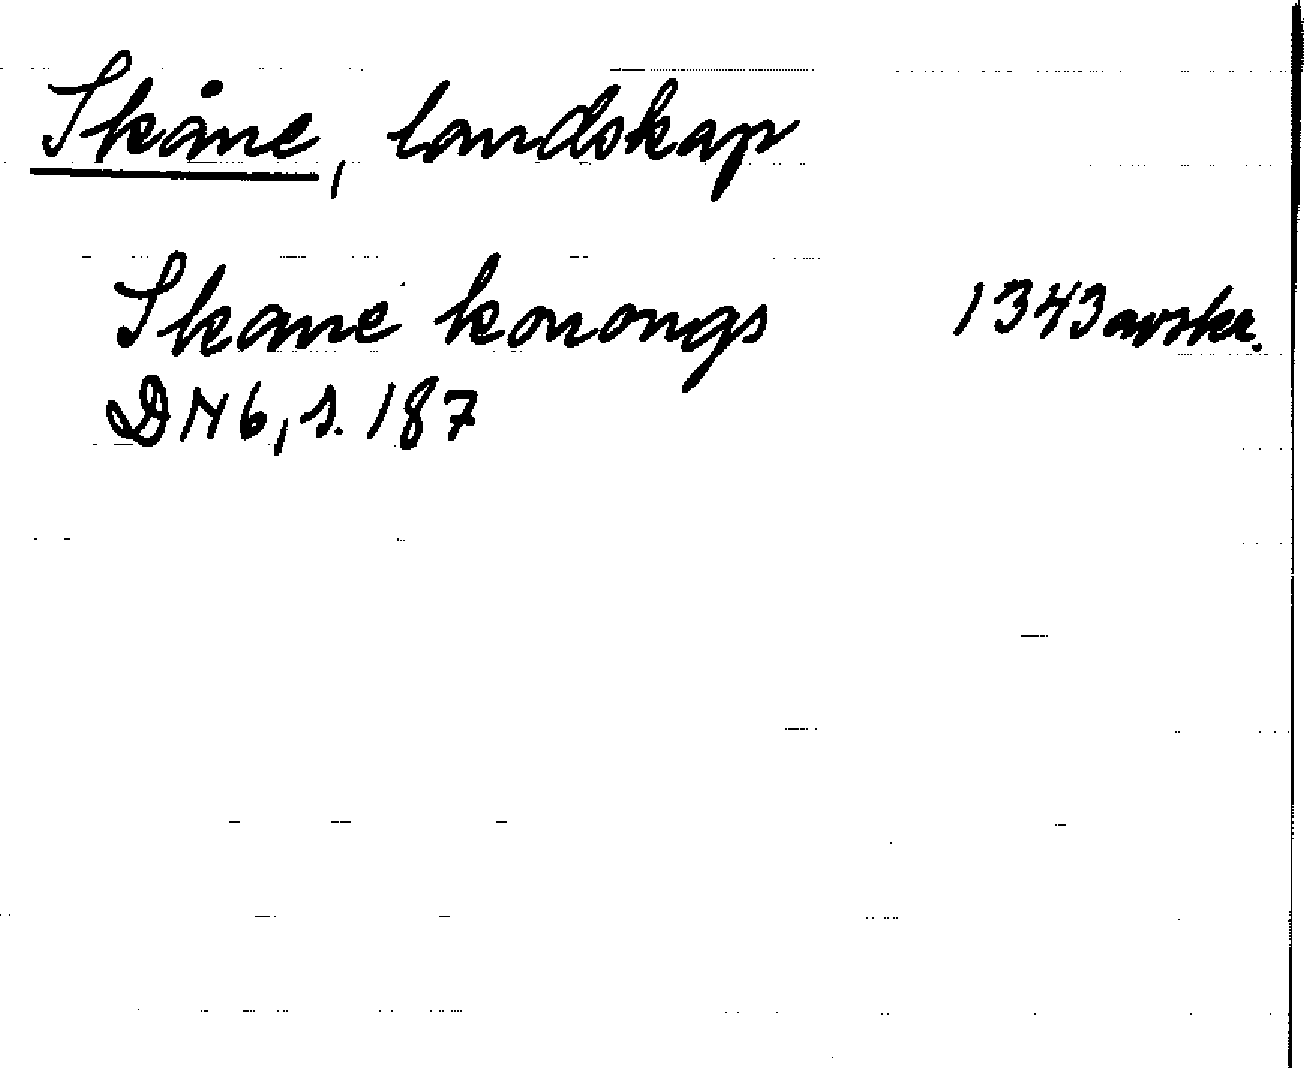 Skåne, landskap
Skane konongs 1343 avskr.
DN 6, s. 187